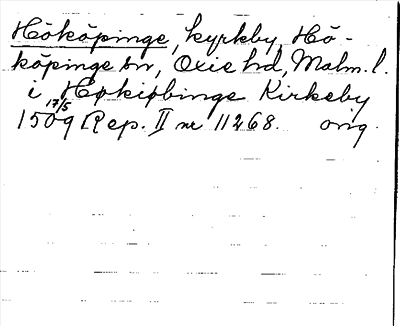 Hököpinge, kyrkby, Hö-
köpinge sn, Oxie hd, Malm. l.
i Høkiøbinge Kirkeby
17/5
1509 Rep. II nr 11268. orig.